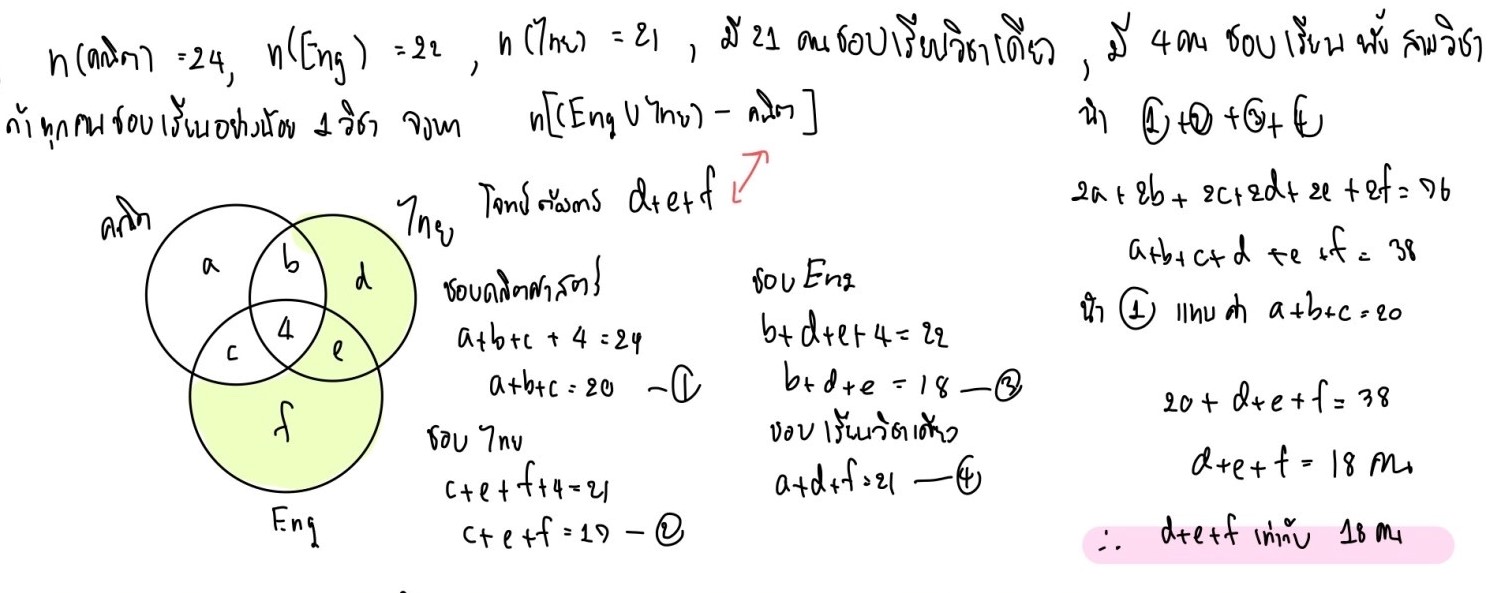 n(คณิต) = 24, n(Eng) = 22, n(ไทย) = 21, มี 21 คนชอบเรียนวิชาเดียว, มี 4 คน ชอบเรียน ทั้ง สามวิชา
ถ้าทุกคนชอบเรียนอย่างน้อย 1 วิชา จงหา n[(Eng ∪ ไทย) - คณิต]
โจทย์ต้องการ d+e+f
คณิต
ไทย
a
b
d
4
c
e
f
Eng
ชอบคณิตศาสตร์
a+b+c + 4 = 24
a+b+c = 20 - ①
ชอบ ไทย
c+e+f+4=21
c+e+f = 17 - ②
ชอบ Eng
b+d+e+4 = 22
b+d+e = 18 - ③
ชอบ เรียนวิชาเดียว
a+d+f = 21 - ④
นำ ①+②+③+④
2a+2b+2c+2d+2e+2f = 76
a+b+c+d+e+f = 38
นำ ① แทนค่า a+b+c = 20
20+d+e+f = 38
d+e+f = 18 คน
∴ d+e+f เท่ากับ 18 คน